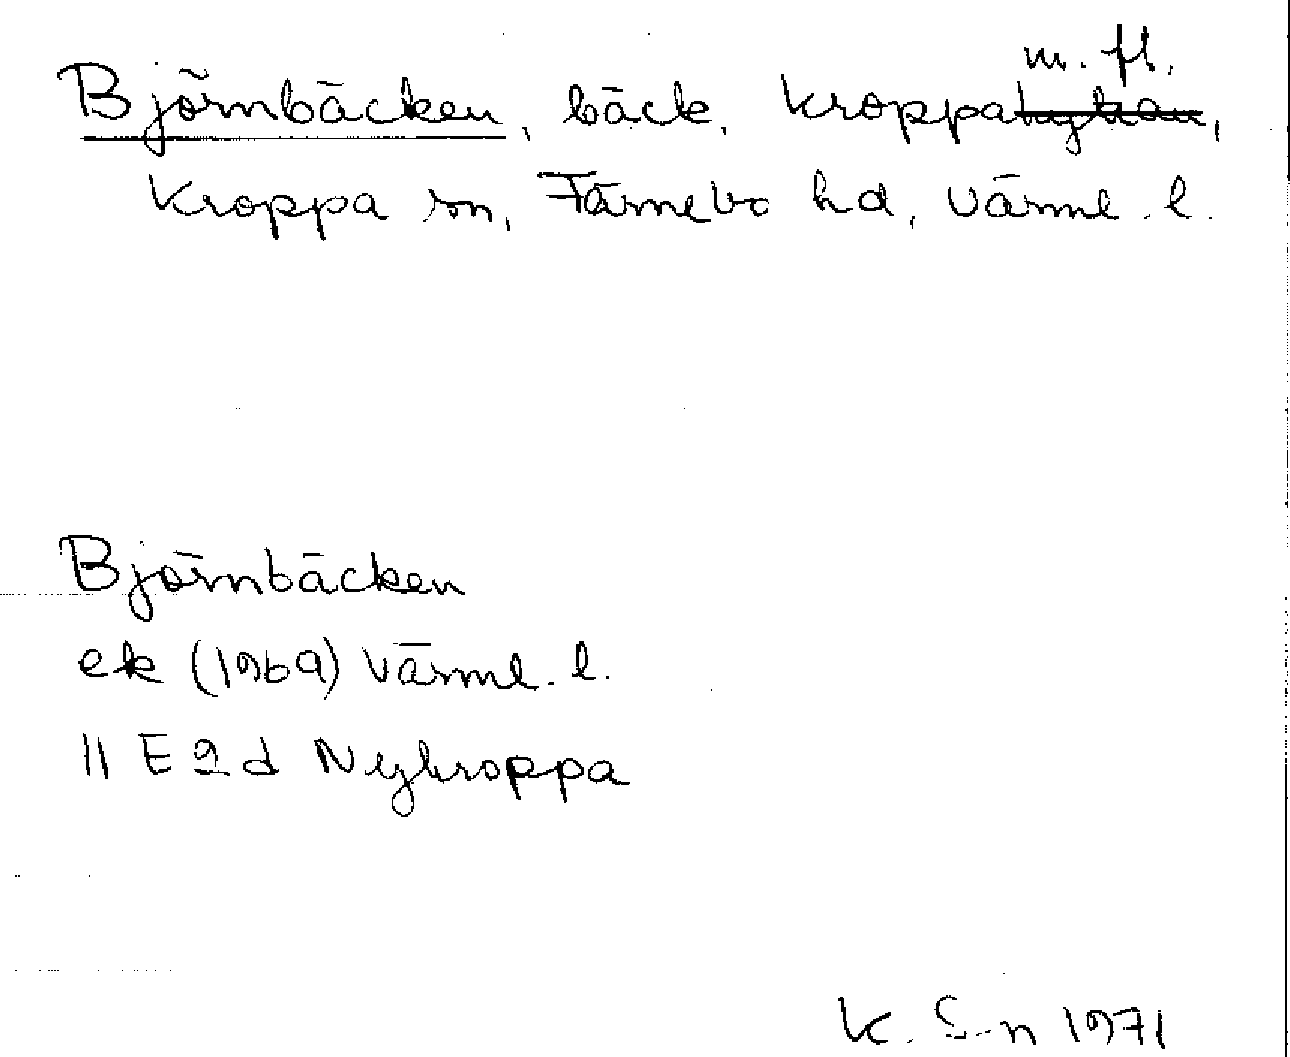 m. fl.
Björnbäcken, bäck, Kroppa,
Kroppa sn, Färnebo hd, Värml. l.
Björnbäcken
ek (1969) Värml. l.
11 E 2 d Nykroppa
K. S-n 1971